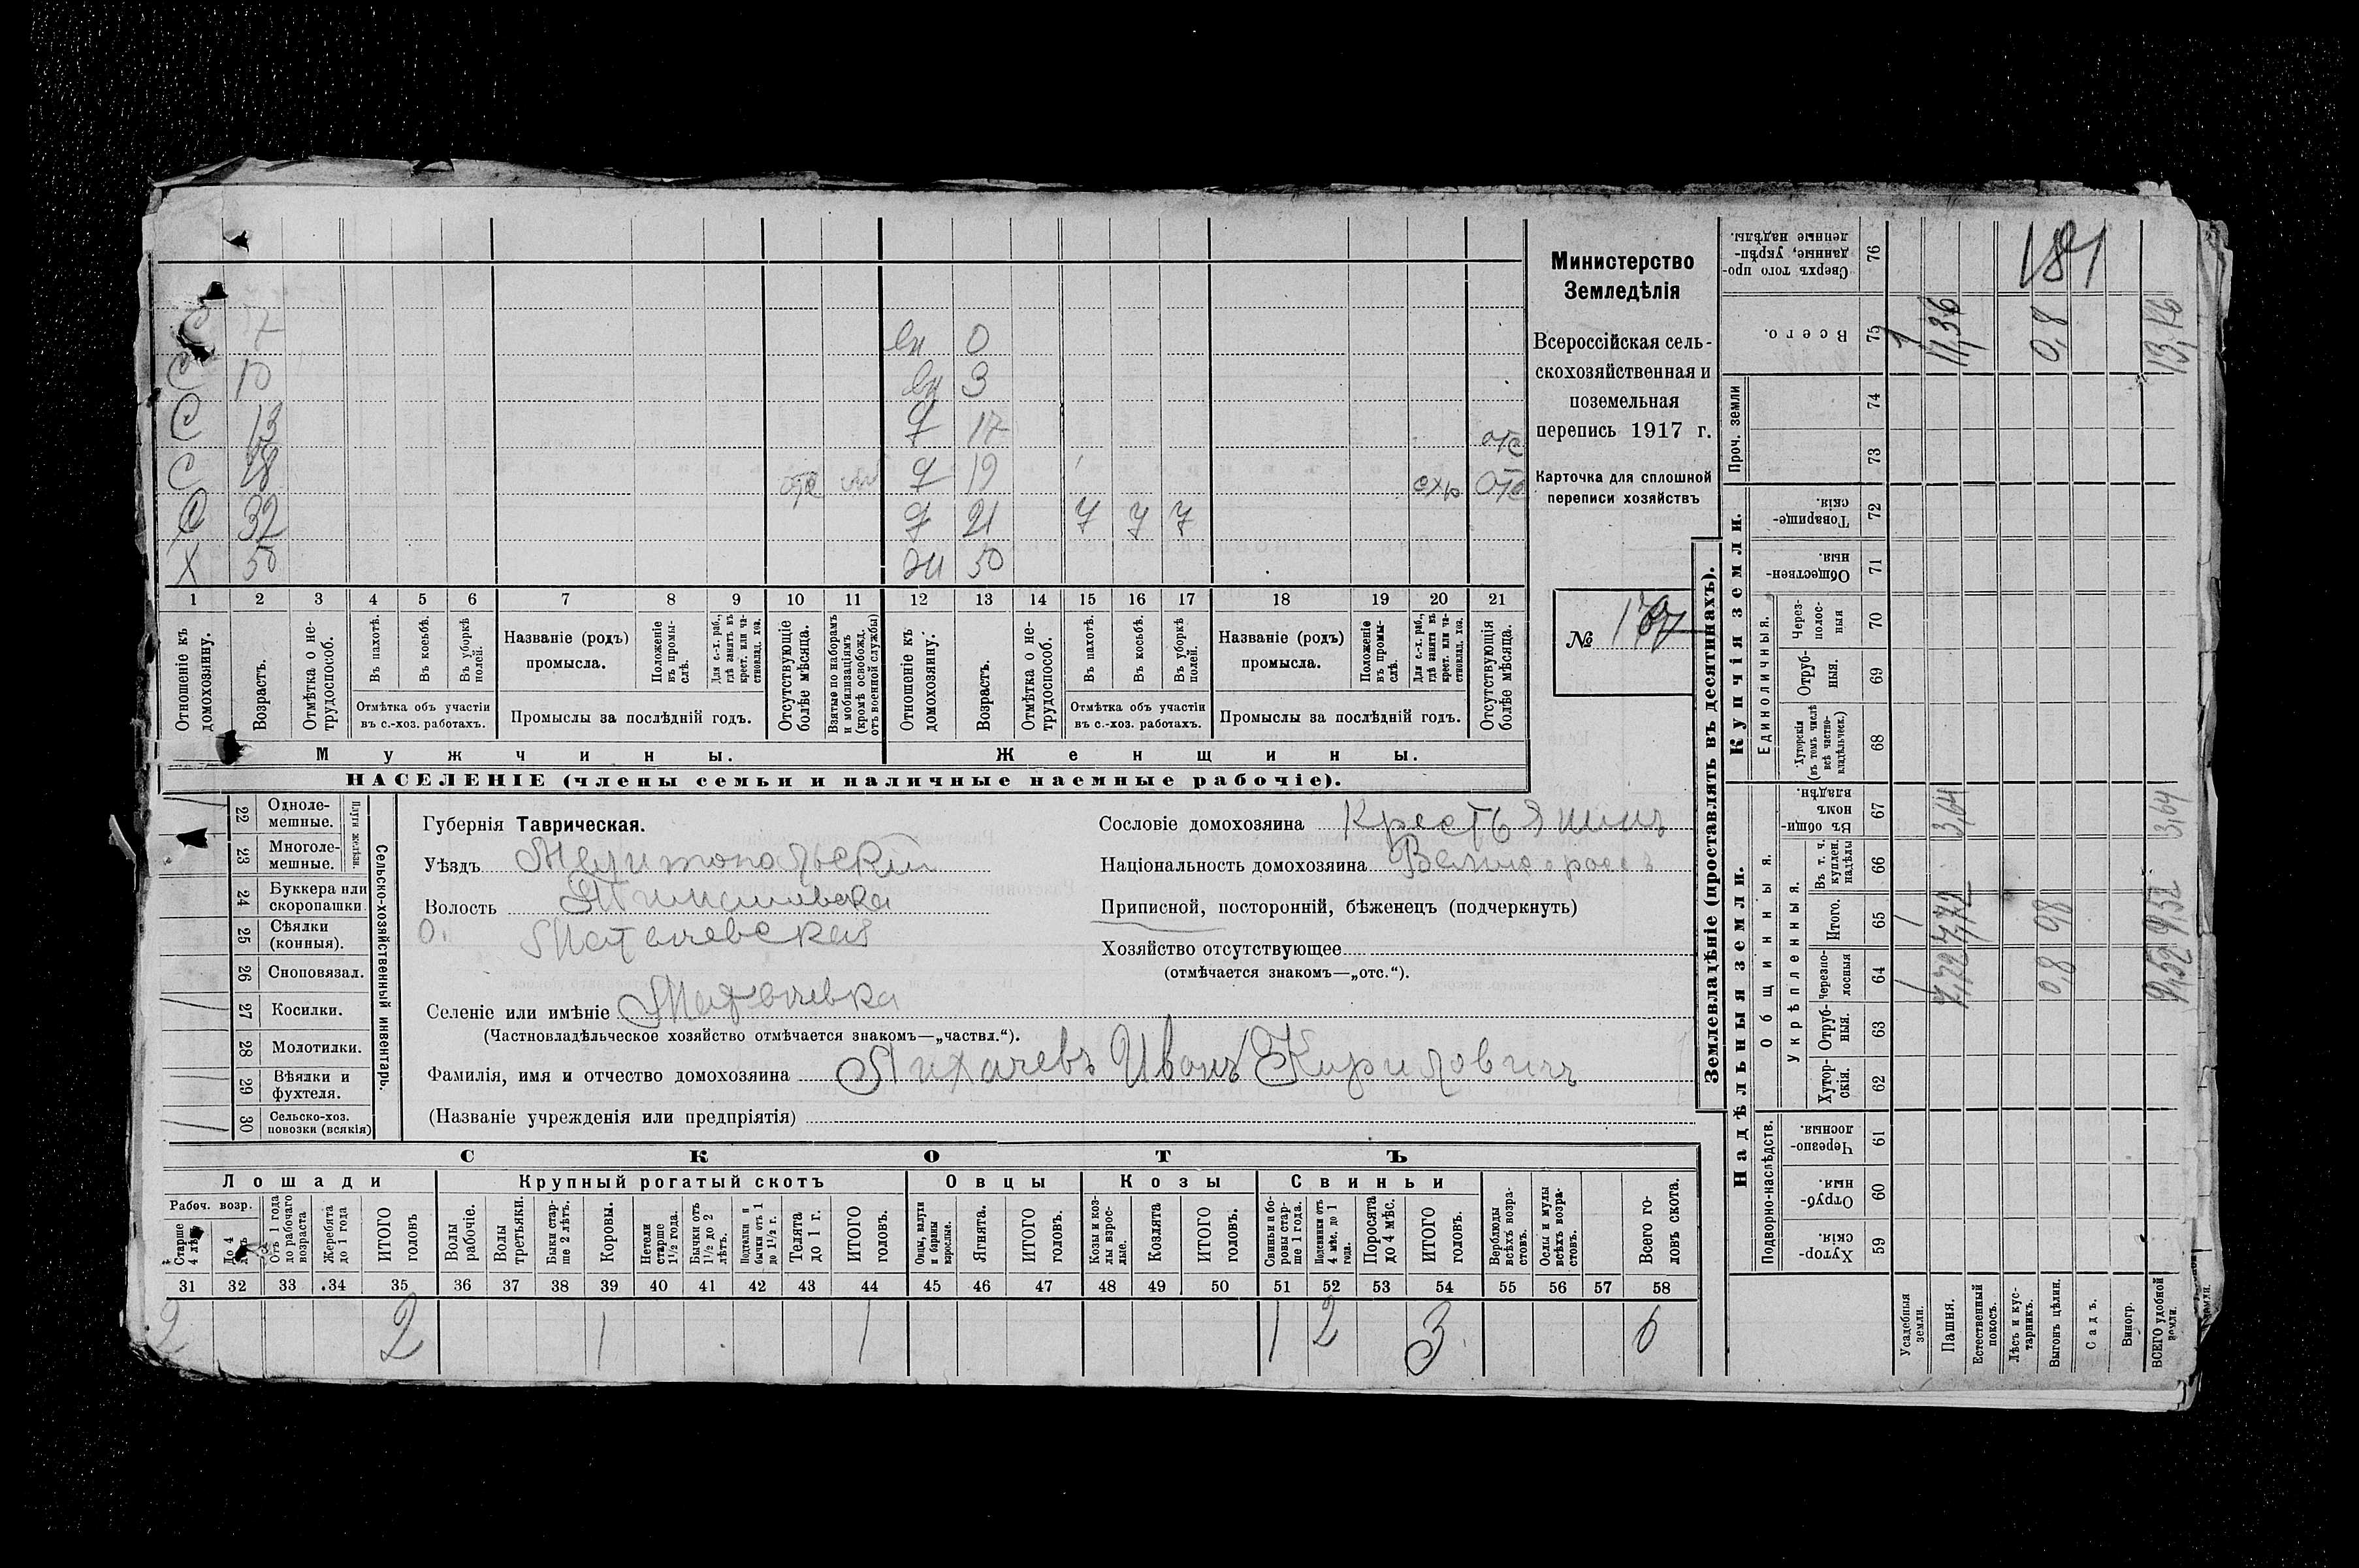 С 7 вн 0
С 10 вн 3
С 13 д 17 отс
С 18 отс д 19 схр отс
С 32 д 21 7 7 7
Х 50 жи 50
1 2 3 4 5 6 7 8 9 10 11 12 13 14 15 16 17 18 19 20 21
Отношеніе къ домохозяину.
Возрастъ.
Отмѣтка о не-трудоспособ.
Въ пахотѣ.
Въ косьбѣ.
Въ уборкѣ полей.
Отмѣтка объ участіи
въ с.-хоз. работахъ.
Названіе (родъ)
промысла.
Положеніе въ промы-слѣ.
Для с.-х. раб., гдѣ занятъ въ крест. или ча-стновлад. хоз.
Промыслы за послѣдній годъ.
Отсутствующіе болѣе мѣсяца.
Взятые по наборамъ и мобилизаціямъ (кромѣ освобожд. отъ военной службы)
Отношеніе къ домохозяину.
Возрастъ.
Отмѣтка о не-трудоспособ.
Въ пахотѣ.
Въ косьбѣ.
Въ уборкѣ полей.
Отмѣтка объ участіи
въ с.-хоз. работахъ.
Названіе (родъ)
промысла.
Положеніе въ промы-слѣ.
Для с.-х. раб., гдѣ занята въ крест. или ча-стновлад. хоз.
Промыслы за послѣдній годъ.
Отсутствующія болѣе мѣсяца.
Мужчины. Женщины.
НАСЕЛЕНІЕ (члены семьи и наличные наемные рабочіе).
Министерство
Земледѣлія
Всероссійская сель-
скохозяйственная и
поземельная
перепись 1917 г.
Карточка для сплошной
переписи хозяйствъ
№
181
Сельско-хозяйственный инвентарь.
Плуги желѣзн.
22 Одноле-мешные.
23 Многоле-мешные.
24 Буккера или скоропашки
25 Сѣялки (конныя).
26 Сноповязал.
27 Косилки.
28 Молотилки.
29 Вѣялки и фухтеля.
30 Сельско-хоз. повозки (всякія)
Губернія Таврическая.
Уѣздъ Мелитопольскій
Волость Тимошовска
О. Матвеевская
Селеніе или имѣніе Матвеевка
(Частновладѣльческое хозяйство отмѣчается знакомъ—„частвл.“).
Фамилія, имя и отчество домохозяина Лихачевъ Иванъ Кириловичъ
(Названіе учрежденія или предпріятія)
Сословіе домохозяина Крестьянинъ
Національность домохозяина Великороссъ
Приписной, посторонній, бѣженецъ (подчеркнуть)
Хозяйство отсутствующее
(отмѣчается знакомъ—„отс.“).
СКОТЪ
Лошади Крупный рогатый скотъ Овцы Козы Свиньи
Рабоч. возр.
Старше 4 лѣтъ
До 4 лѣтъ
Отъ 1 года до рабочаго возраста
Жеребята до 1 года
ИТОГО головъ
Волы рабочіе.
Волы третьяки.
Быки стар-ше 2 лѣтъ.
Коровы.
Нетели старше 1½ года.
Бычки отъ 1½ до 2 лѣтъ.
Подтелки и бычки отъ 1 до 1½ г.
Телята до 1 г.
ИТОГО головъ.
Овцы, валухи и бараны взрослые.
Ягнята.
ИТОГО головъ.
Козы и коз-лы взрос-лые.
Козлята
ИТОГО головъ.
Свиньи и бо-ровы стар-ше 1 года.
Подсвинки отъ 4 мѣс. до 1 года.
Поросята до 4 мѣс.
ИТОГО головъ.
Верблюды всѣхъ возра-стовъ.
Ослы и мулы всѣхъ возра-стовъ.
Всего го-ловъ скота.
31 32 33 34 35 36 37 38 39 40 41 42 43 44 45 46 47 48 49 50 51 52 53 54 55 56 57 58
2 2 1 1 1 2 3 6
Землевладѣніе (проставлять въ десятинахъ).
Надѣльныя земли. Купчія земли.
Подворно-наслѣдств.
Общинныя.
Укрѣпленныя.
Единоличныя.
Проч. земли
Хутор-скія. 59
Отруб-ныя. 60
Черезпо-лосныя. 61
Хутор-скія. 62
Отруб-ныя. 63
Черезпо-лосныя 64
Итого. 65
Въ т. ч. куплен. надѣлы 66
Въ общи-номъ владѣн. 67
Хуторскія (въ томъ числѣ всѣ частно-владѣльческ.) 68
Отруб-ныя. 69
Через-полос-ныя 70
Обществен-ныя. 71
Товарище-скія. 72
73
74
Всего. 75
Сверхъ того про-данные, укрѣп-ленные надѣлы. 76
Усадебныя земли. 1 1 1
Пашня. 7,72 7,72 3,64 11,36
Естественный покосъ.
Лѣсъ и кус-тарникъ.
Выгонъ цѣлин. 0,8 0,8 0,8
Садъ.
Виногр.
ВСЕГО удобной земли. 9,52 9,52 3,64 13,16